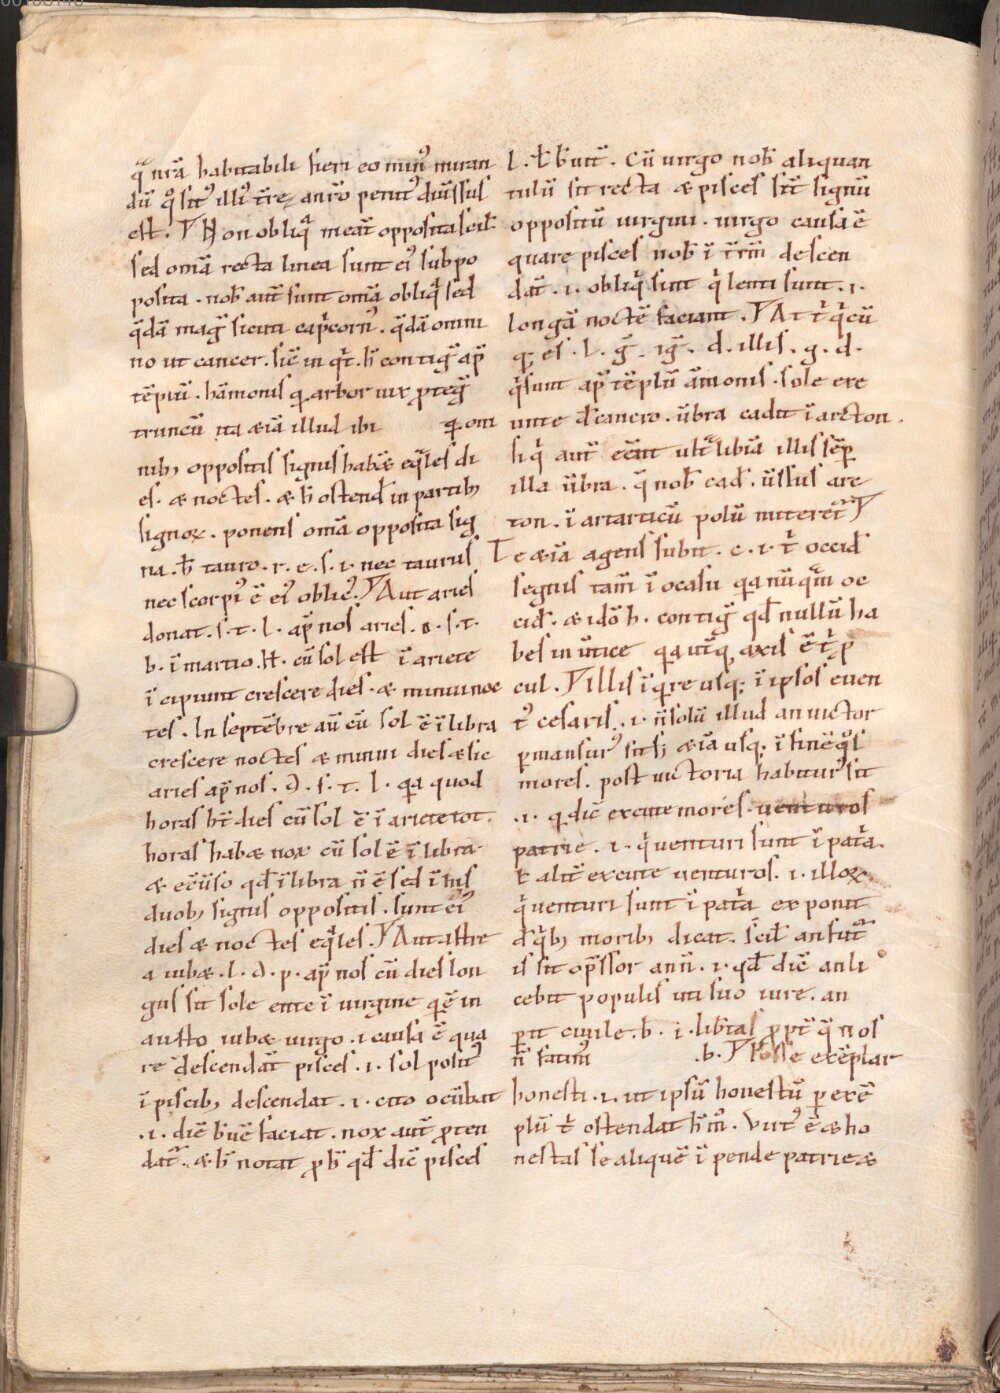 00100140
q nrā habitabili fieri eo min᷒ miran
dū qᷓ sit᷒ illi᷒ t̄re, a nr̄o penit᷒ diu͛sus
est. Non obliqᷓ meāt opposita scil͛
sed om̄a recta linea sunt ei᷒ subpo
posita. nob̄ aut̄ sunt om̄a obliqᷓ sed
qᷓdā mag᷒ sicuti cap̄corn᷒. qᷓdā omni
no ut cancer. sic̄ in
tēplū. hāmonis q arbor uix ꝓtegᷓ
truncū ita æiā illud ibi ꝗ om
nib; oppositis signis habēs eqᷓles di
es. æ noctes. æ h̄ ostend̄ in partib;
signoꝝ. ponens om̄a opposita sig
na. h̄ tauro. r. e. s. i. nec taurus
nec scorpi᷒ ē ei᷒ obliq᷒. Aut aries
donat. s. t. l. ap̄ nos aries. n. s. t.
b. ī martio. H. cū sol est ī ariete
īcipiunt crescere dies. æ minui noc
tes. In septēbre aū cū sol ē ī libra
crescere noctes æ minui dies æ sic
aries ap̄ nos. ꝺ. s. t. l. qa quod
horas ht̄ dies cū sol ē ī ariete tot.
horas habæ nox cū sol ē ī libra.
æ ec̄uso qd̄ ī libra n̄ ē sed ī his
duob; signis oppositis. sunt ei᷒
dies æ noctes eqᷓles. Aut astre
a iubæ. l. ꝺ. p. ap̄ nos cū dies lon
gus sit sole ente ī uirgine qē in
austo iubæ uirgo. i causa ē qua
re descendāt pisces. i. sol posit᷒
ī piscib; descendat. i. cito ocūbat
.i. diē b͛uē faciat. nox aut̄ ꝓten
dat᷒. æ h̄ notat ꝓ h̄ qd̄ dic̄ pisces
l. t̄. h̄unt᷒. Cū uirgo nob̄ aliquan
tulū sit recta æ pisces sit̄ signū
oppositū uirgini. uirgo causa ē
quare pisces nob̄ ī descen
dāt. i. obliq᷒ sint qᷓ lenti sunt. i.
longā noctē faciant. At t̄ qᷓcū
q; es. l. ḡ. ig᷒. d. illis. g. d.
qᷓ sunt ap̄ tēplū āmonis. sole exe
unte d̄ cancro. ūbra cadit ī arcton.
siqᷓ aut̄ eēnt ult᷒ libiā illis sēꝑ
illa ūbra. qᷓ nob̄ cad̄. u͛sus arc
ton. ī artarticū polū mitteret᷒
Te æiā agens subit. c. i. t̄ occid̄
segnis tam̄ ī ocasu qa nūqᷓm oc
cid̄. æ idō h. contig᷒ qd̄ nullū ha
bes in u͛tice qa utiq; axis ē t̄ ꝓ
cul. Illis īqᷓre usq; ī ipsos euen
t᷒ cesaris. i. n̄ solū illud an uictor
ꝑmansur᷒ sit s; æiā usq; ī finē qᷓs
mores. post uictoria habitur᷒ sit
.i. q dic̄ excute mores. uenturos
patrie. i. qᷓ uenturi sunt ī pat᷒a.
ł alit̄ excute uenturos. i. illoꝝ
qᷓ uenturi sunt ī pat᷒a exponit
d̄ qᷓb; morib; dicat. scil͛ an fut᷒
is sit opp̄ssor ann̄. i. qd̄ dic̄ an li
cebit populis uti suo iure. an
ꝑit ciuile. b. i. lib͛tas ꝓpt̄ qᷓ nos
n̄ satim᷒ .b. Posse exēplar
honesti. i. ut ipsū honestū ꝑ exē
plū t̄ ostendat h̄m᷒. Virt᷒ ē æ ho
nestas se aliquē īpende patrie æ